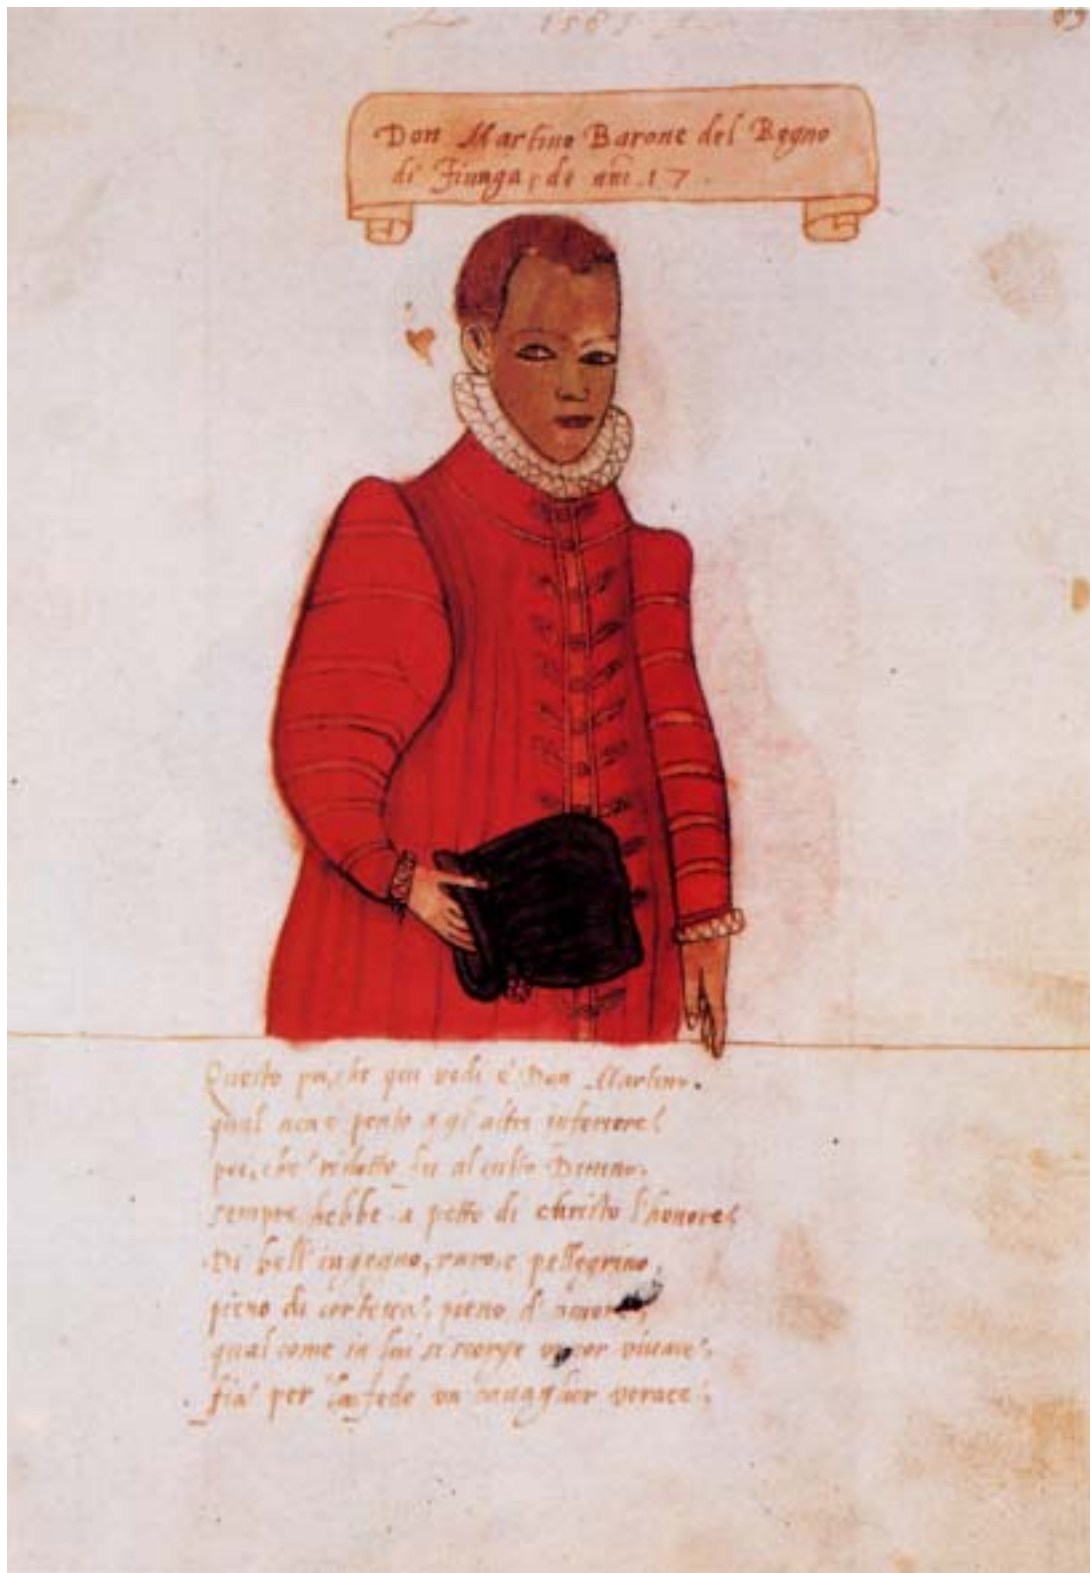 158
Don Martino Barone del Regno
di Fiunga, de añi. 17.
Questo poi, che qui vedi è Don Martino.
qual non è ponto a gl' altri inferiore
poi, che ridotto fu al culto Divino,
sempre hebbe a petto di christo l'honore
Di bell' ingegno, raro, e pellegrino,
pieno di cortesia, pieno d' amore,
qual come in lui si scorge vivace,
fia per la fede un cavaglier verace.